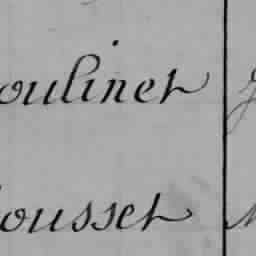 oulinet
ousset